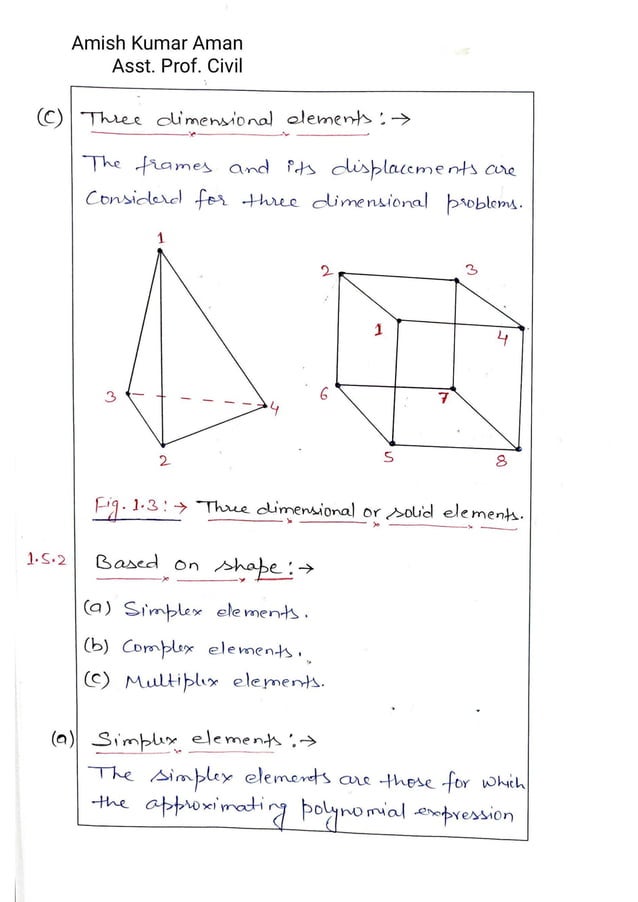 Amish Kumar Aman
Asst. Prof. Civil
(C) Three dimensional elements :→
The frames and its displacements are
Considerd for three dimensional problems.
1
2 3
1 4
3 4 6 7
2 5 8
Fig. 1.3 :→ Three dimensional or solid elements.
1.5.2 Based on shape :→
(a) Simplex elements.
(b) Complex elements.
(C) Multiplex elements.
(a) Simplex elements :→
The simplex elements are those for which
the approximating polynomial expression